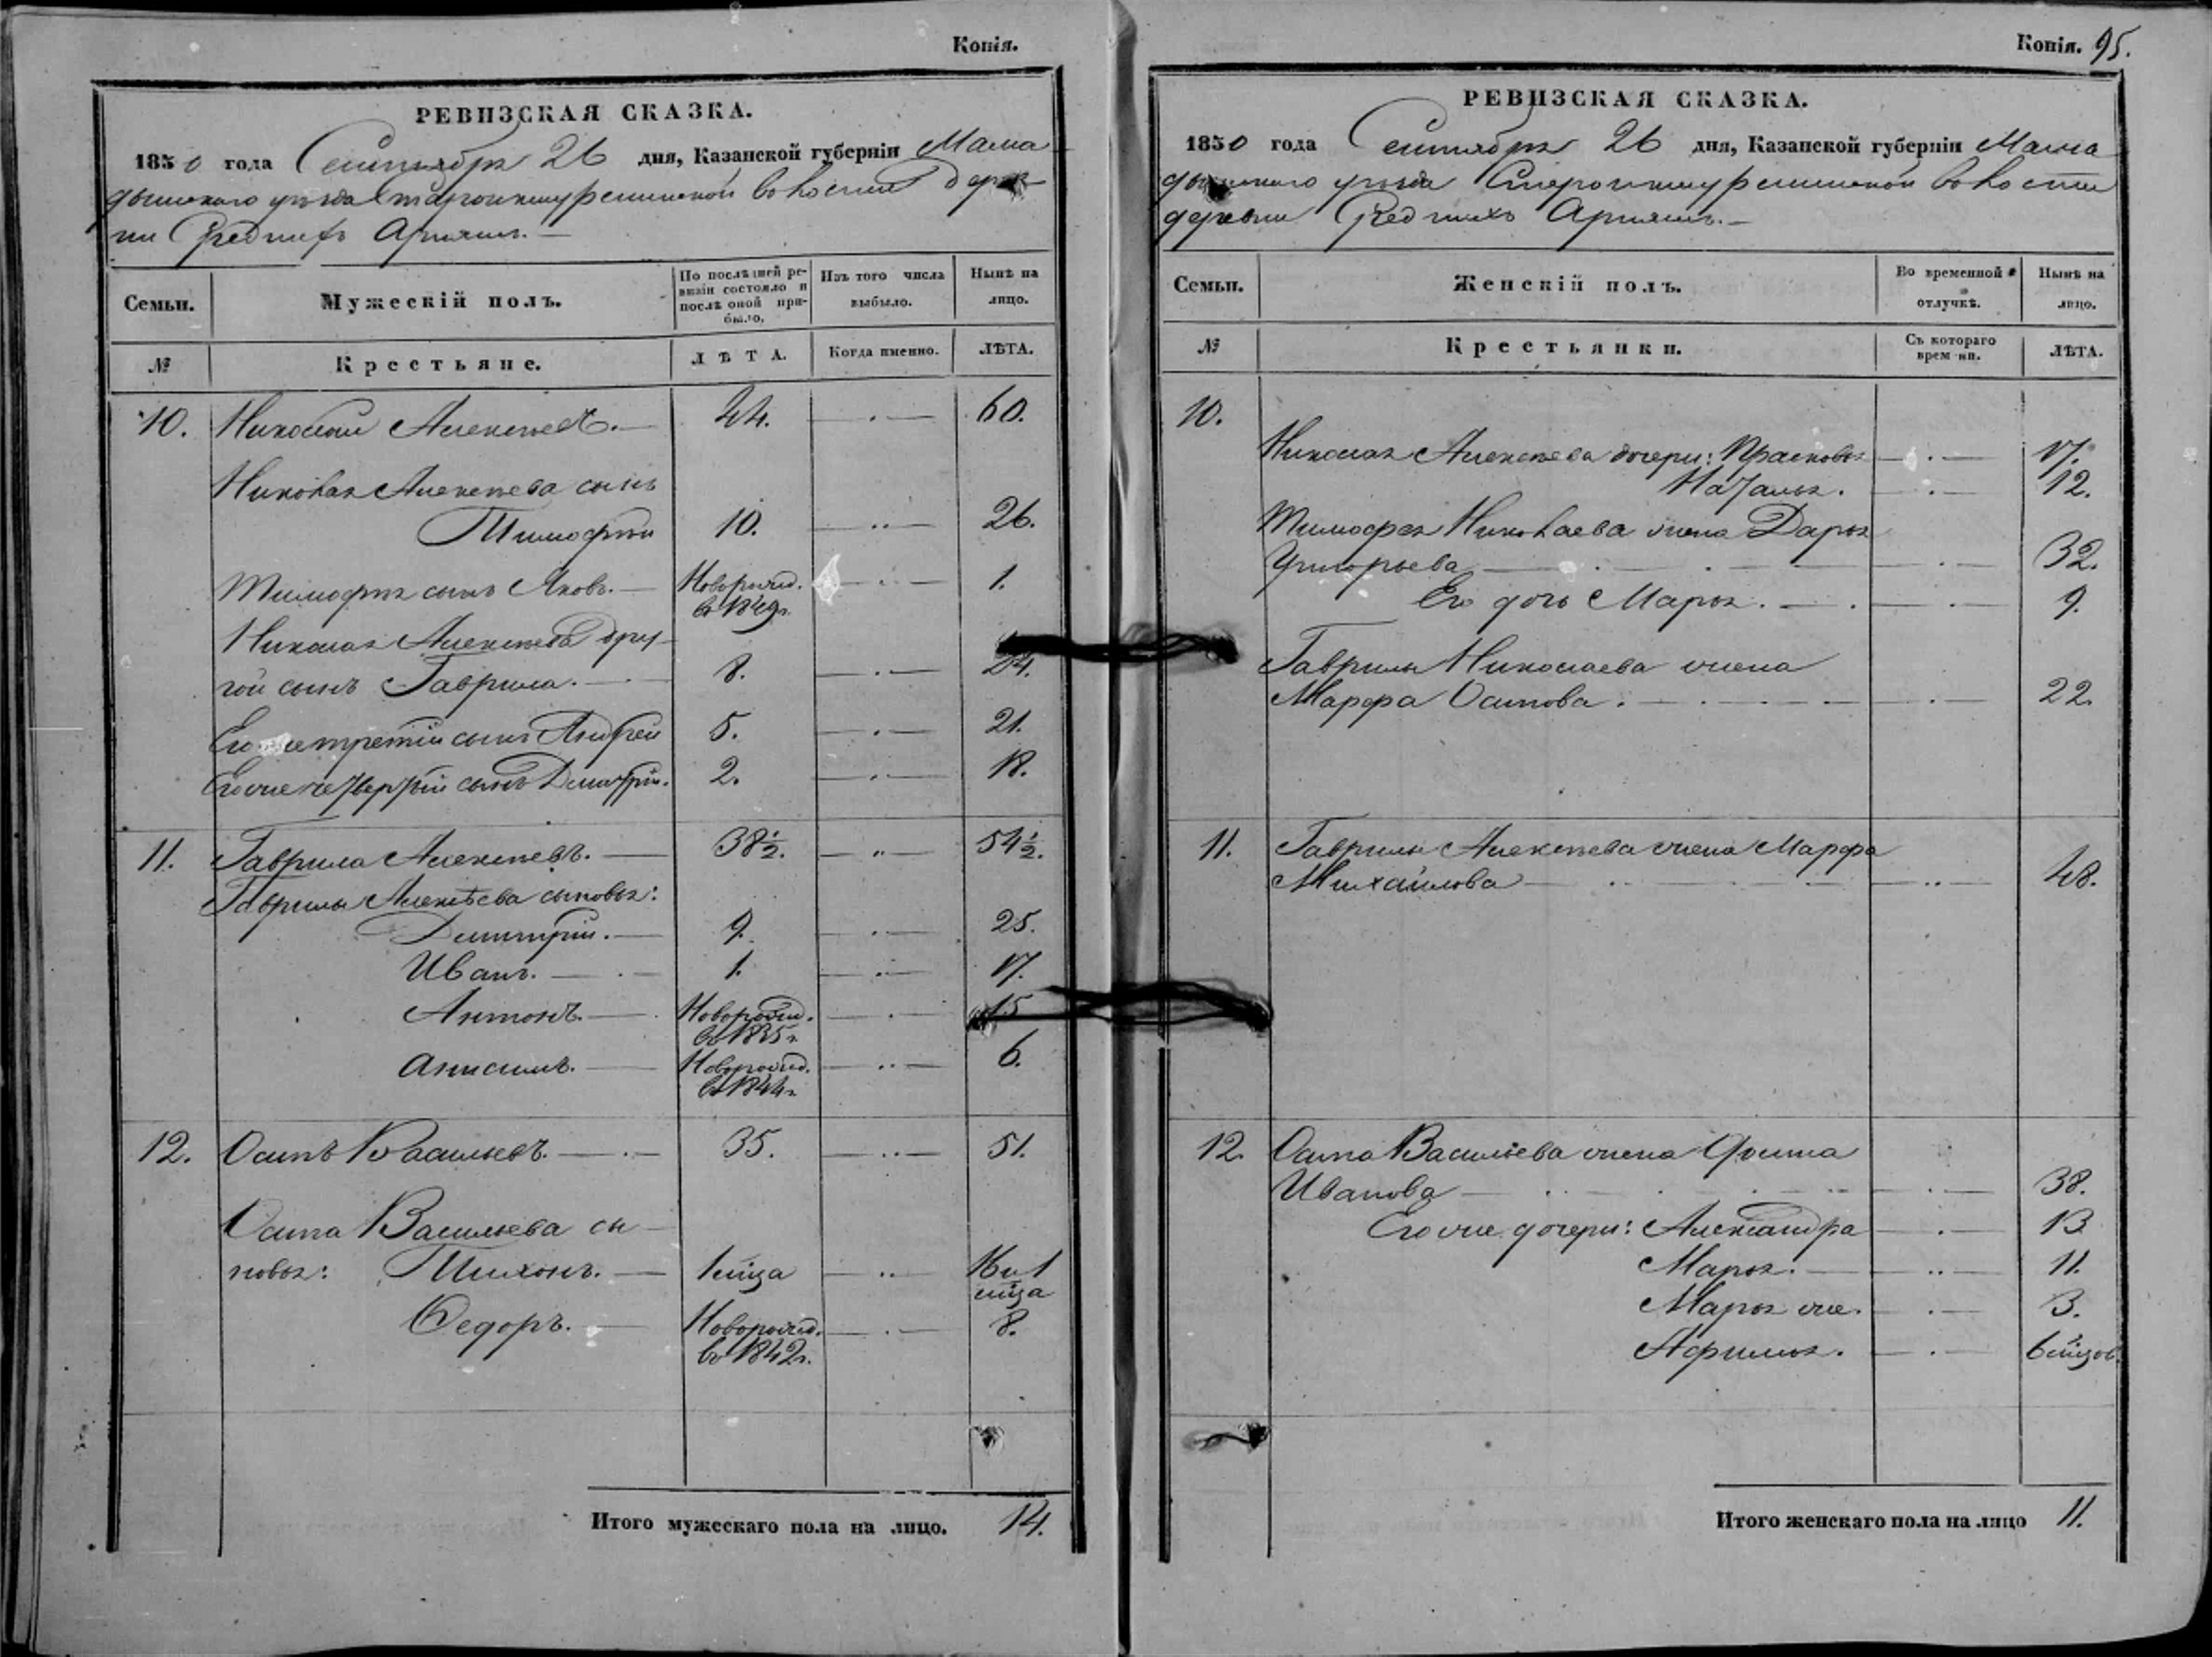 Копія.
РЕВИЗСКАЯ СКАЗКА.
1850 года Сентября 26 дня, Казанской губерніи Мама
дышскаго уѣзда волости дерев
ни Среднихъ
Семьи.
Мужескій полъ.
По послѣдней ре-
визіи состояло и
послѣ оной при-
было.
Изъ того числа
выбыло.
Нынѣ на
лицо.
№
Крестьяне.
ЛѢТА.
Когда именно.
ЛѢТА.
10. Николай Алексѣевъ.— 44. —.— 60.
Николая Алексѣева сынъ
Тимофѣй 10. —..— 26.
Тимофея сынъ Яковъ.— Новорожд. —..— 1.
въ 1849г.
Николая Алексѣева дру-
гой сынъ Гаврила.— 8. —.— 24.
Его же третій сынъ Андрей 5. —.— 21.
Его же четвертый сынъ Дмитрій. 2. —.— 18.
11. Гаврила Алексѣевъ.— 38½. —..— 54½.
Гаврилы Алексѣева сыновья:
Дмитрій.— 9. —.— 25.
Иванъ.— 1. —..— 17.
Антонъ.— Новорожд. —.— 15
въ 1835г.
Анисимъ.— Новорожд. —..— 6.
въ 1844г.
12. Осипъ Васильевъ.— 35. —..— 51.
Осипа Васильева сы-
новья: Тихонъ.— 1 мѣца —..— 16 и 1
мѣца
Ѳедоръ.— Новорожд. —.— 8.
въ 1842г.
Итого мужескаго пола на лицо. 14.
Копія. 95.
РЕВИЗСКАЯ СКАЗКА.
1850 года Сентября 26 дня, Казанской губерніи Мама
дышскаго уѣзда волости
деревни Среднихъ
Семьи.
Женскій полъ.
Во временной
отлучкѣ.
Нынѣ на
лицо.
№
Крестьянки.
Съ котораго
времени.
ЛѢТА.
10.
Николая Алексѣева дочери: Прасковья —.— 17.
Наталья. —.— 12.
Тимофея Николаева жена Дарья
Григорьева — —.— 32.
Его дочь Марья.— —.— 9.
Гаврилы Николаева жена
Марфа Осипова.— —.— 22.
11. Гаврилы Алексѣева жена Марфа
Михайлова — —..— 48.
12. Осипа Васильева жена
Иванова — —.— 38.
Его же дочери: Александра —.— 13
Марья.— —..— 11.
Марья же. —.— 3.
—.— 6 мѣцов.
Итого женскаго пола на лицо 11.